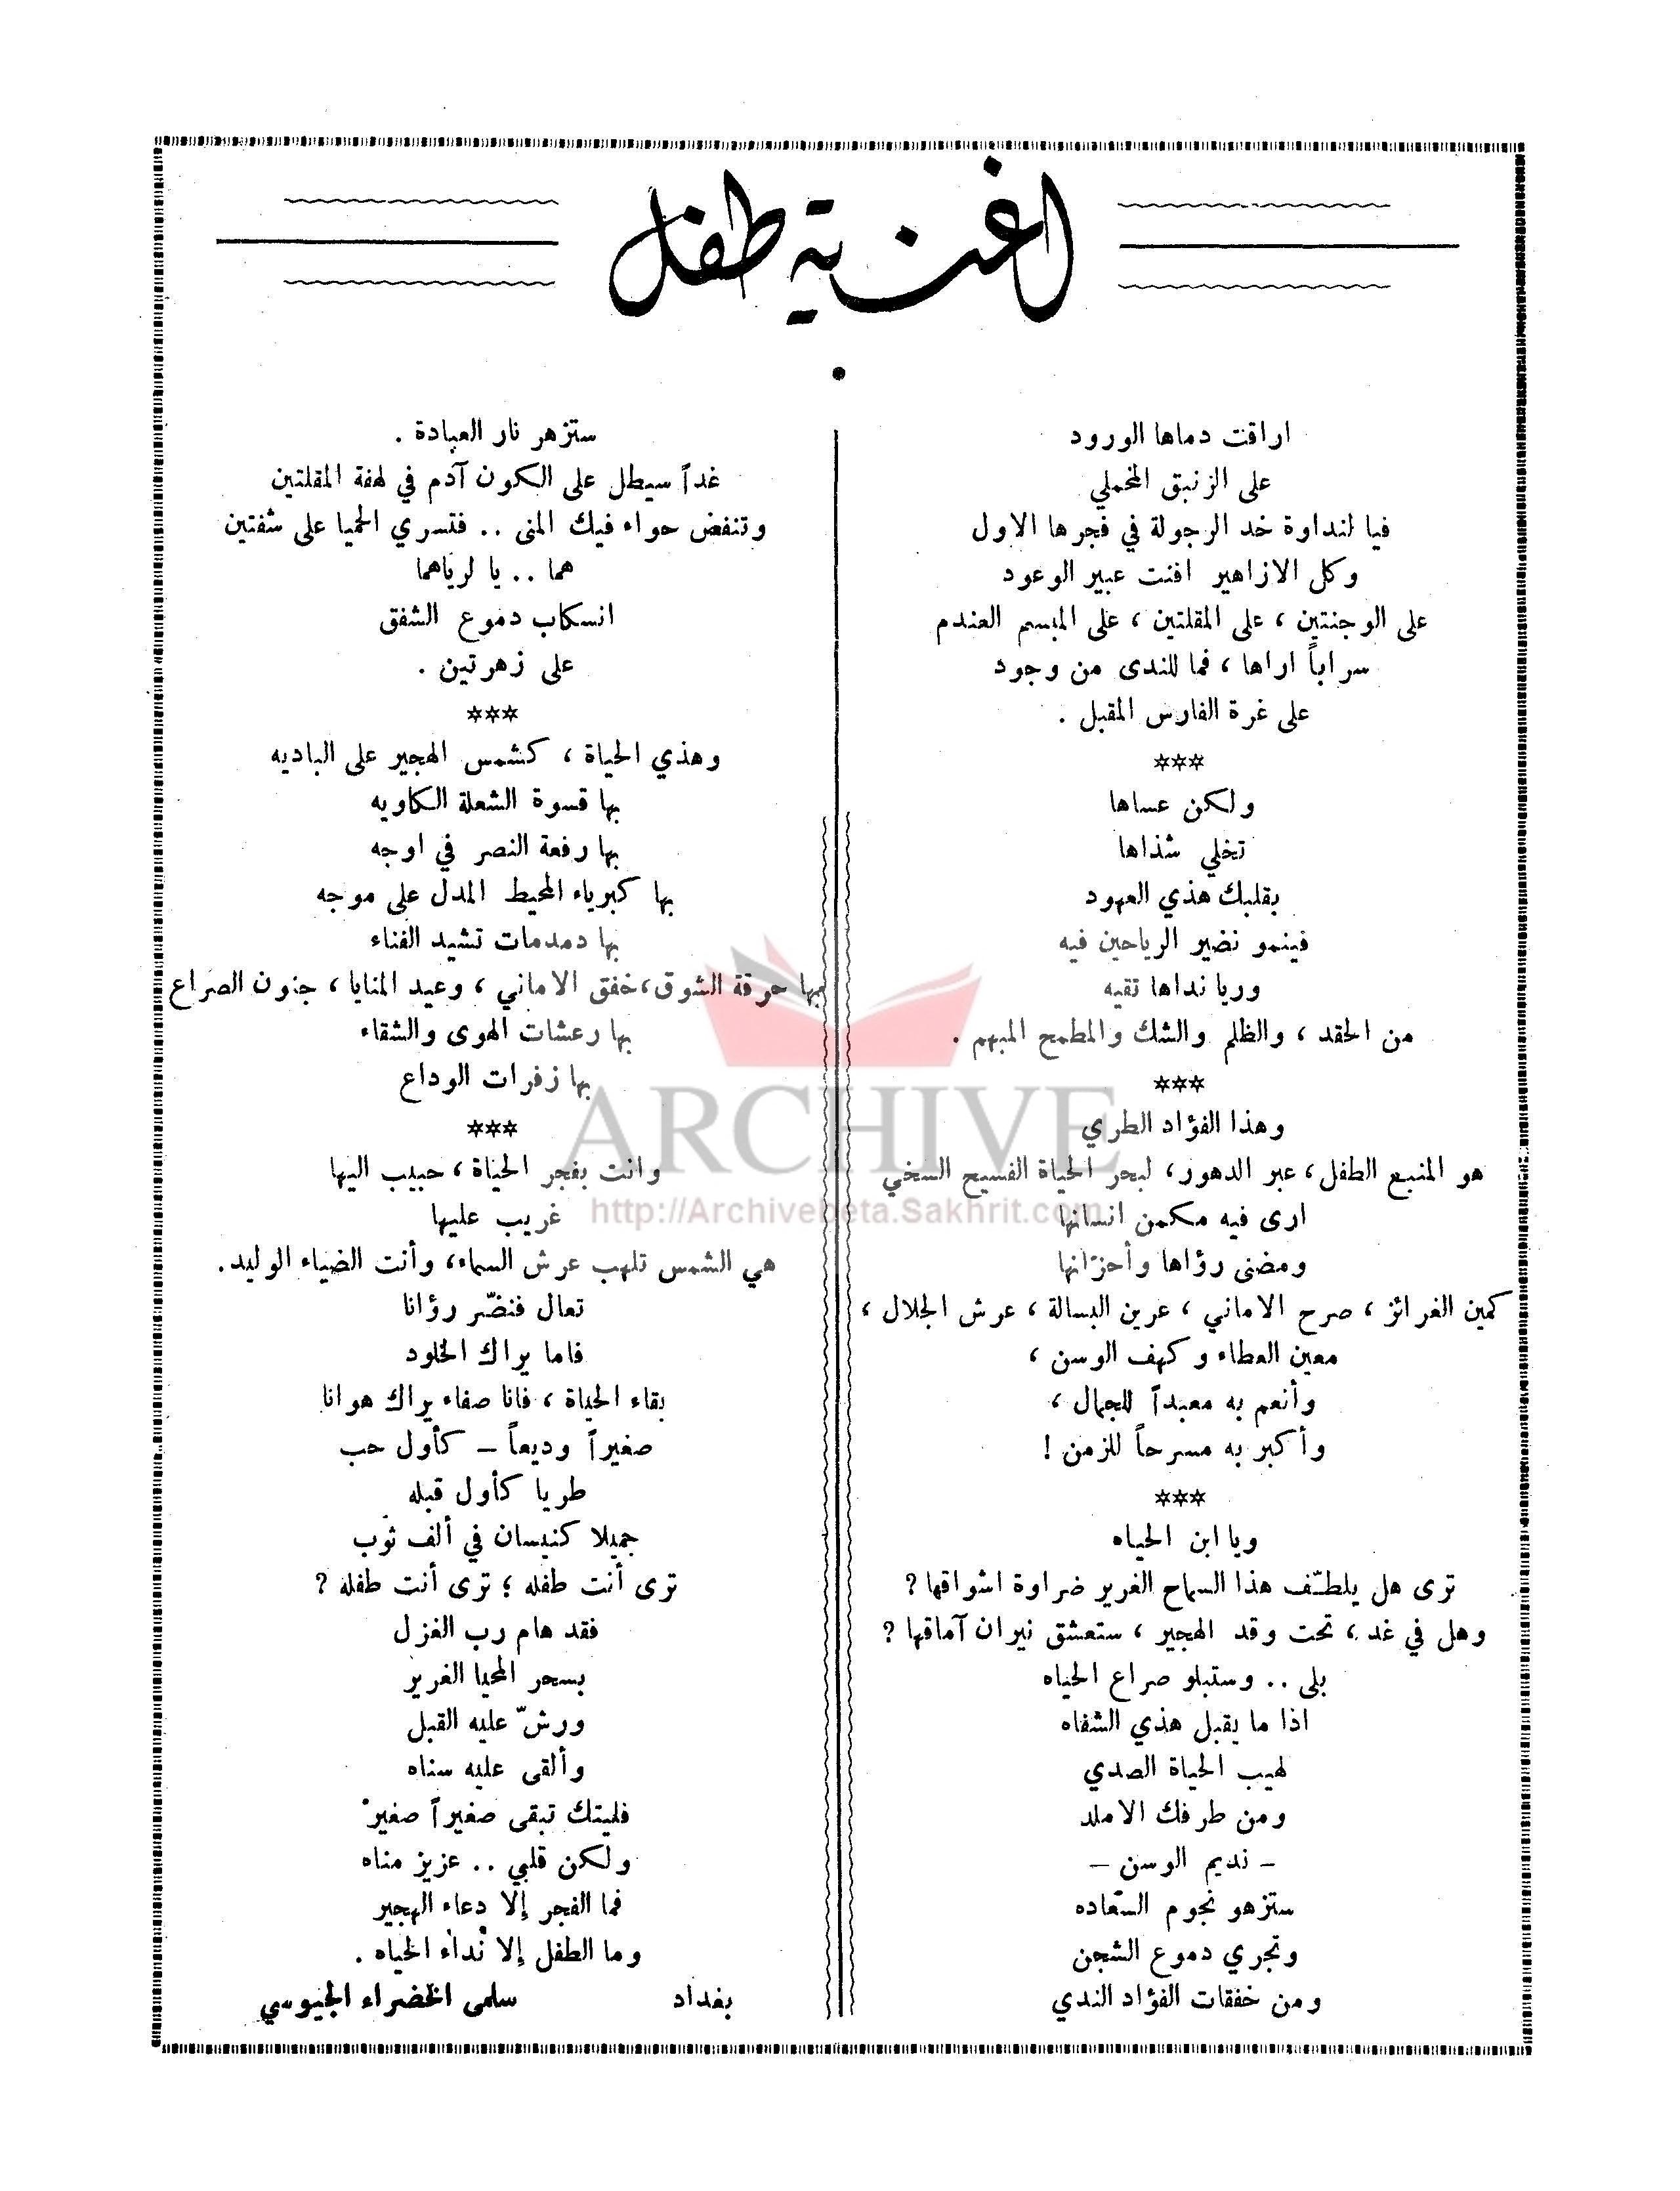 اغنية طفل
اراقت دماها الورود
على الزنبق المخملي
فيا لنداوة خد الرجولة في فجرها الاول
وكل الازاهير افنت عبير الوعود
على الوجنتين ، على المقلتين ، على المبسم العندم
سراباً اراها ، فما للندى من وجود
على غرة الفارس المقبل .
***
ولكن عساها
تخلي شذاها
بقلبك هذي العهود
فينمو نضير الرياحين فيه
وريا نداها تقيه
من الحقد ، والظلم والشك والمطمح المبهم .
***
وهذا الفؤاد الطري
هو المنبع الطفل، عبر الدهور، لبحر الحياة الفسيح السخي
ارى فيه مكمن انسانها
ومضنى رؤاها وأحزانها
كمين الغرائز ، صرح الاماني ، عرين البسالة ، عرش الجلال ،
معين العطاء وكهف الوسن ،
وأنعم به معبداً للجمال ،
وأكبر به مسرحاً للزمن !
***
ويا ابن الحياه
ترى هل يلطّف هذا السماح الغرير ضراوة اشواقها ?
وهل في غد ، تحت وقد الهجير ، ستعشق نيران آماقها ?
بلى .. وستبلو صراع الحياه
اذا ما يقبل هذي الشفاه
لهيب الحياة الصدي
ومن طرفك الاملد
– نديم الوسن –
ستزهو نجوم السّعاده
وتجري دموع الشجن
ومن خفقات الفؤاد الندي
ستزهر نار العبادة .
غداً سيطل على الكون آدم في لهفة المقلتين
وتنفض حواء فيك المنى .. فتسري الحميا على شفتين
هما .. يا لرياهما
انسكاب دموع الشفق
على زهرتين .
***
وهذي الحياة ، كشمس الهجير على الباديه
بها قسوة الشعلة الكاويه
بها رفعة النصر في اوجه
بها كبرياء المحيط المدل على موجه
بها دمدمات تشيد الفناء
بها حرقة الشوق، خفق الاماني ، وعيد المنايا ، جنون الصراع
بها رعشات الهوى والشقاء
بها زفرات الوداع
***
وانت بفجر الحياة ، حبيب اليها
غريب عليها
هي الشمس تلهب عرش السماء، وأنت الضياء الوليد.
تعال فنضّر رؤانا
فاما يراك الخلود
بقاء الحياة ، فانا صفاء يراك هوانا
صغيراً وديعاً – كأول حب
طريا كأول قبله
جميلا كنيسان في ألف ثوب
ترى أنت طفله ؛ ترى أنت طفله ?
فقد هام رب الغزل
بسحر المحيا الغرير
ورشّ عليه القبل
وألقى عليه سناه
فليتك تبقى صغيراً صغيرْ
ولكن قلبي .. عزيز مناه
فما الفجر إلا دعاء الهجير
وما الطفل إلا نداء الحياه .
بغداد سلمى الخضراء الجيوسي
ARCHIVE
http://Archivebeta.Sakhrit.com